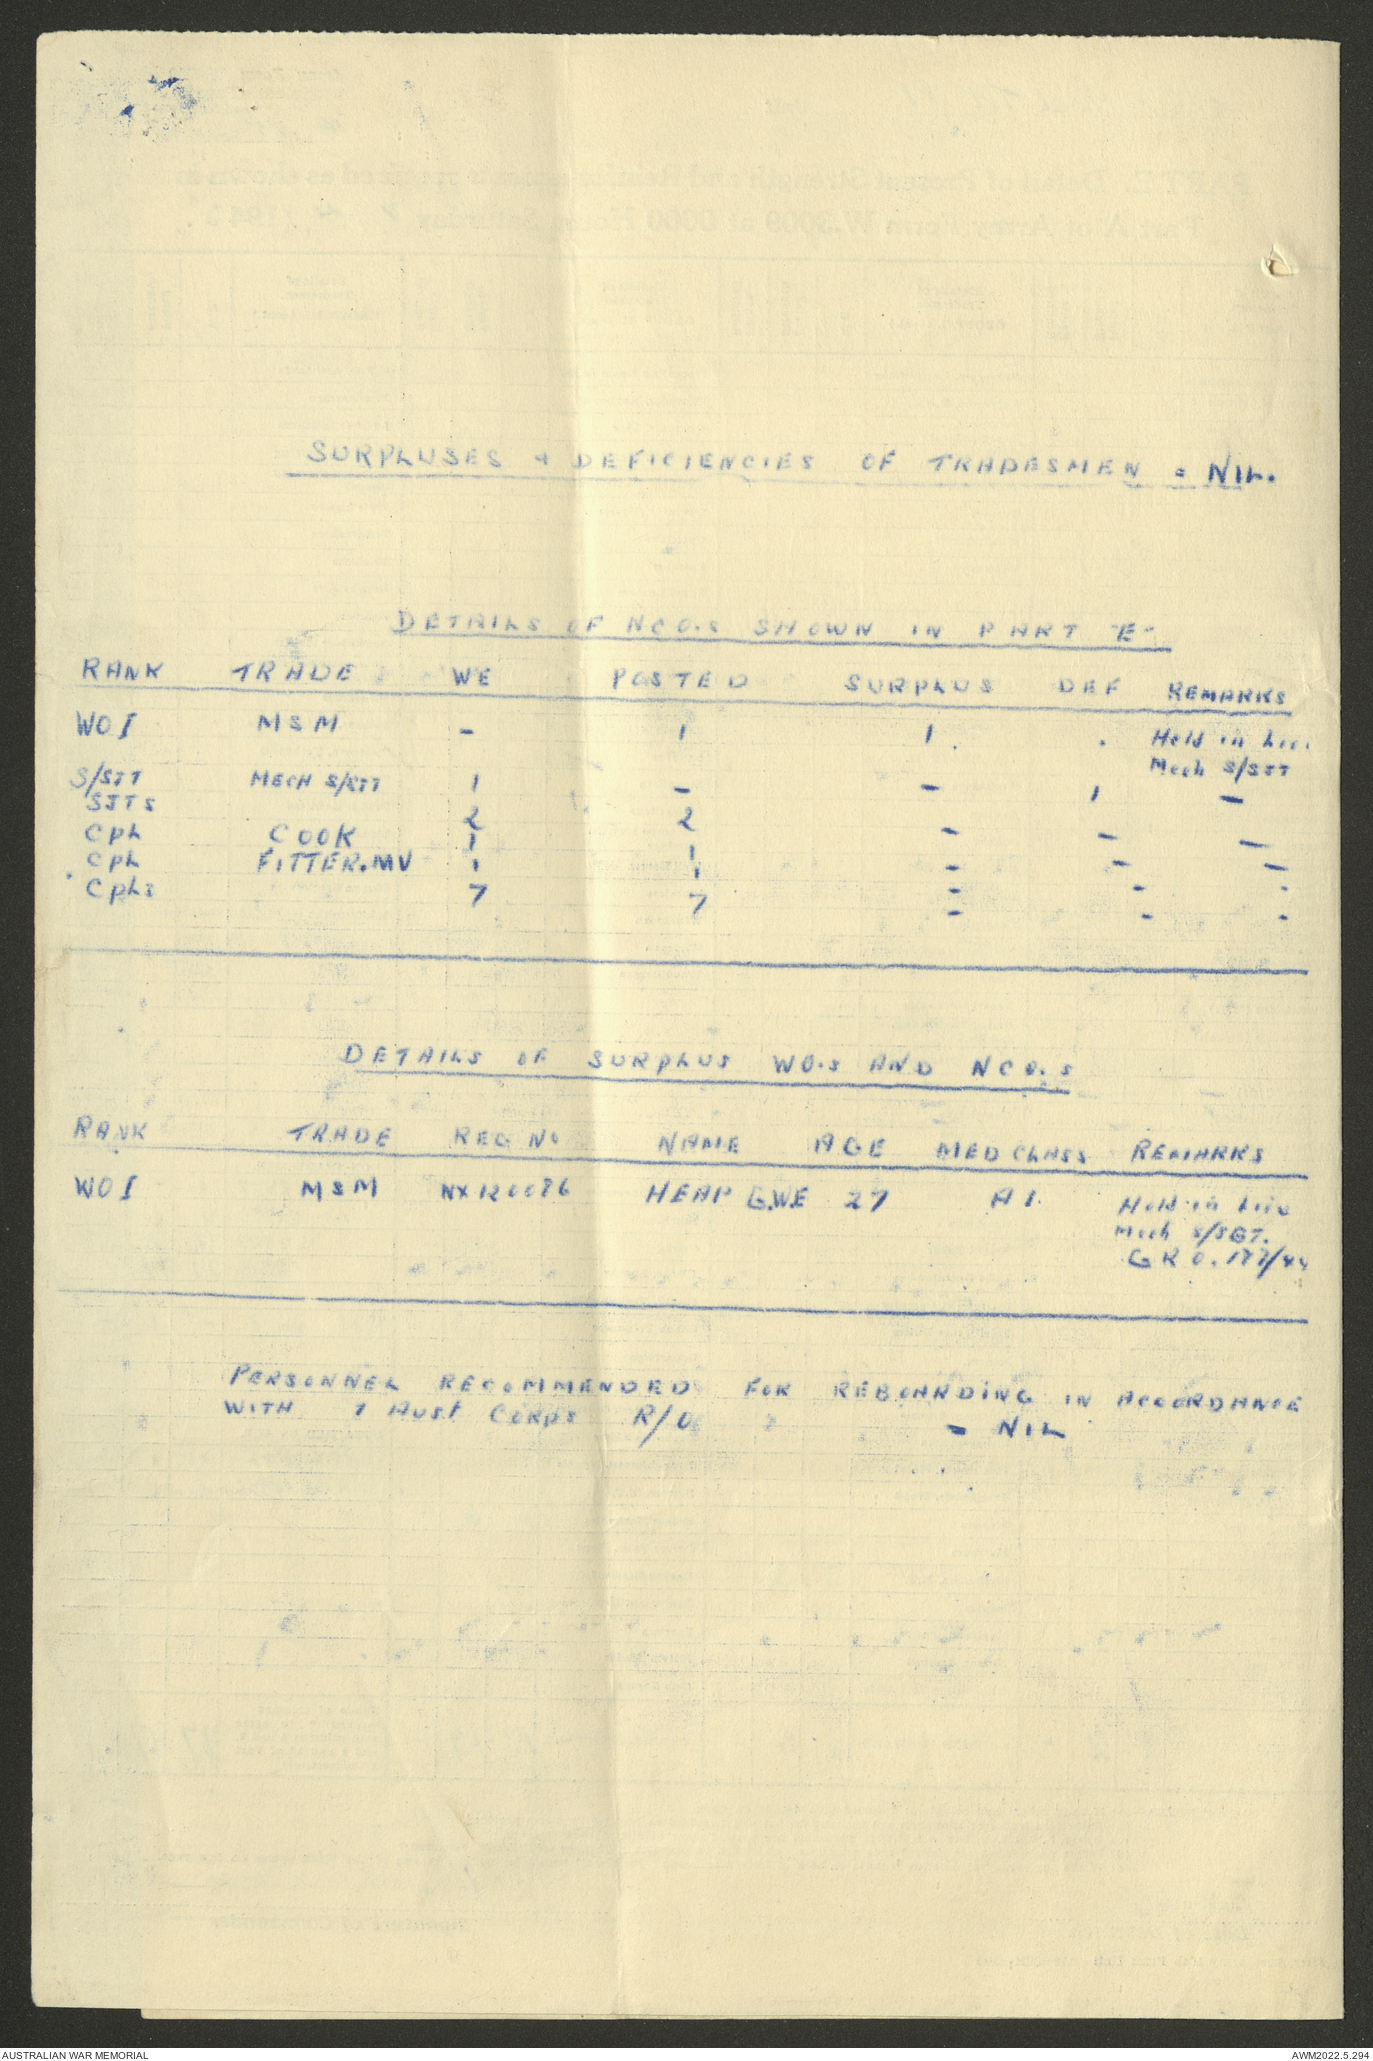 SURPLUSES + DEFICIENCIES OF TRADESMEN = NIL.
DETAILS OF NCO.s SHOWN IN PART "E"
RANK TRADE WE POSTED SURPLUS DEF REMARKS
WO I MSM - 1 1. . Held in lieu
Mech S/SJT
S/SJT MECH S/SJT 1 - - 1 -
SJTS 2 2 - - -
CPL COOK 1 1 - - -
CPL FITTER.MV 1 1 - - -
CPLs 7 7 - - -
DETAILS OF SURPLUS WO.s AND NCO.s
RANK TRADE REG NO NAME AGE MED CLASS REMARKS
WO I MSM HEAP G.W.E 27 A1 Held in lieu
Mech S/SGT.
GRO. 177/44
PERSONNEL RECOMMENDED FOR REBOARDING IN ACCORDANCE
WITH 1 Aust CORPS R/O - NIL
AUSTRALIAN WAR MEMORIAL
AWM2022.5.294